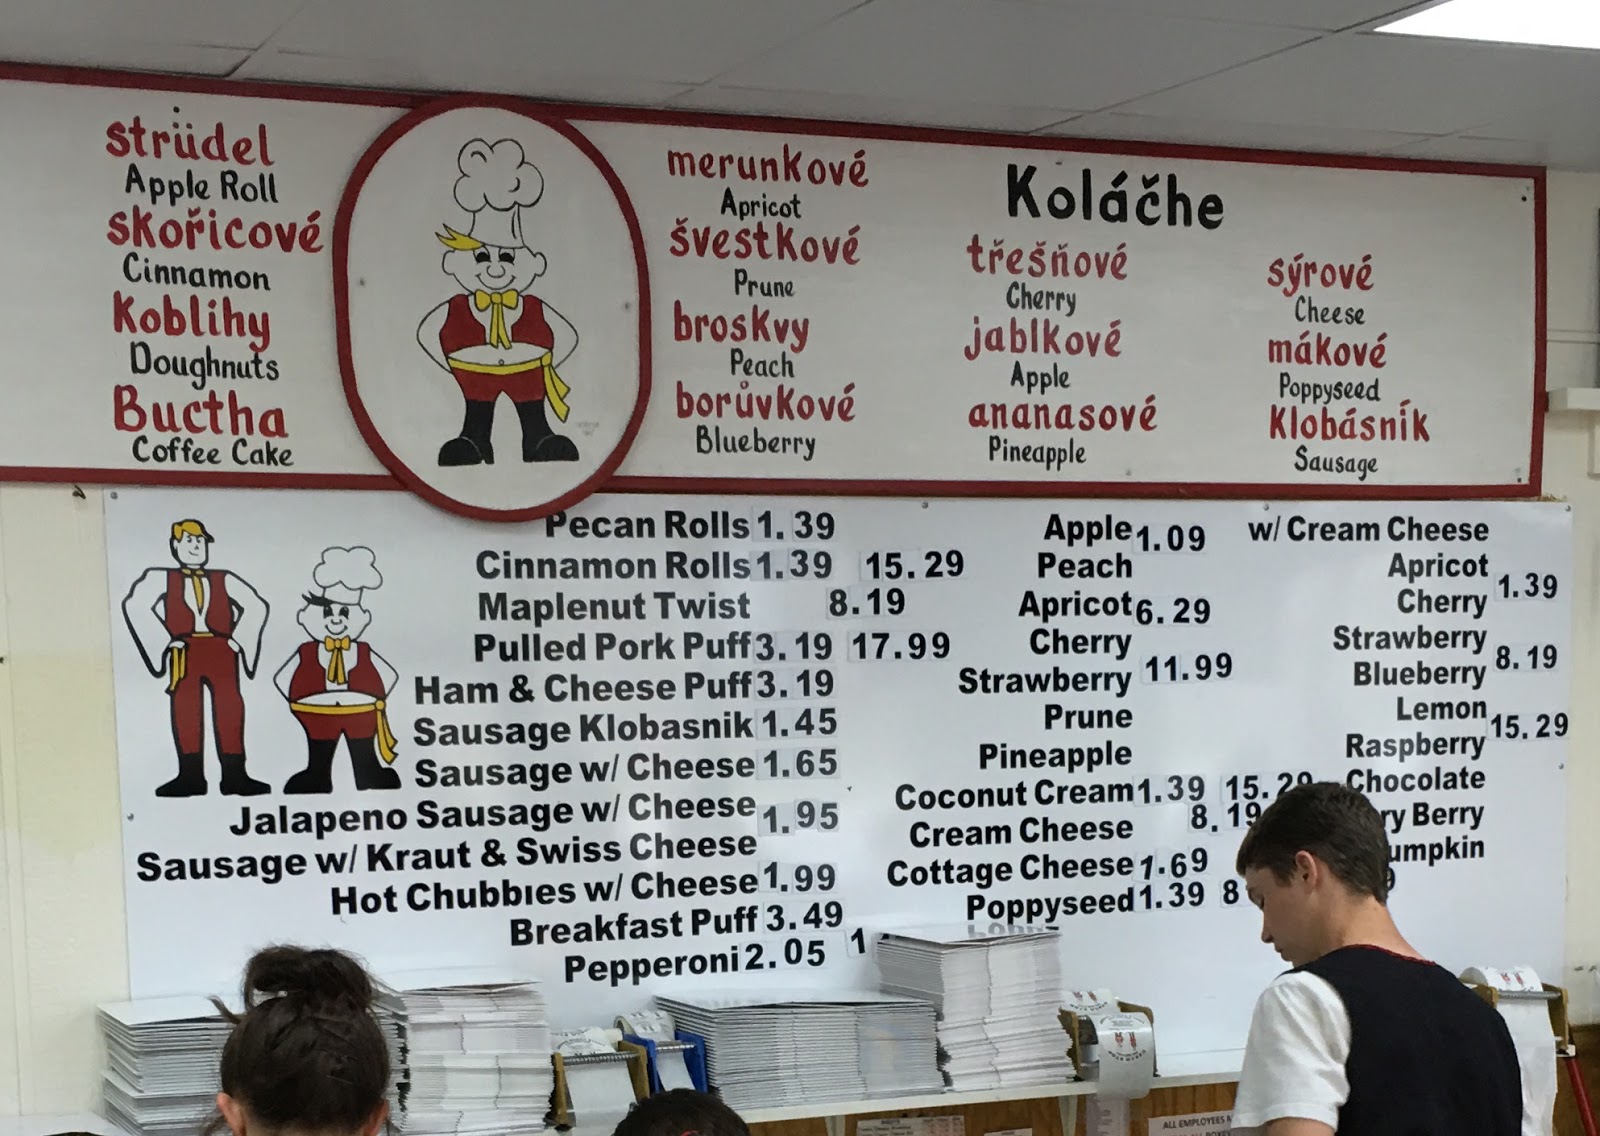 strüdel
Apple Roll
skořicové
Cinnamon
Koblihy
Doughnuts
Buctha
Coffee Cake
merunkové
Apricot
švestkové
Prune
broskvy
Peach
borůvkové
Blueberry
Koláčhe
třešňové
Cherry
jablkové
Apple
ananasové
Pineapple
sýrové
Cheese
mákové
Poppyseed
Klobásník
Sausage
Pecan Rolls 1.39
Cinnamon Rolls 1.39 15.29
Maplenut Twist 8.19
Pulled Pork Puff 3.19 17.99
Ham & Cheese Puff 3.19
Sausage Klobasnik 1.45
Sausage w/ Cheese 1.65
Jalapeno Sausage w/ Cheese 1.95
Sausage w/ Kraut & Swiss Cheese
Hot Chubbies w/ Cheese 1.99
Breakfast Puff 3.49
Pepperoni 2.05 1
Apple 1.09
Peach
Apricot 6.29
Cherry
Strawberry 11.99
Prune
Pineapple
Coconut Cream 1.39 15.29
Cream Cheese 8.19
Cottage Cheese 1.69
Poppyseed 1.39 8
w/ Cream Cheese
Apricot 1.39
Cherry
Strawberry 8.19
Blueberry
Lemon 15.29
Raspberry
Chocolate
ry Berry
umpkin
9
ALL EMPLOYEES